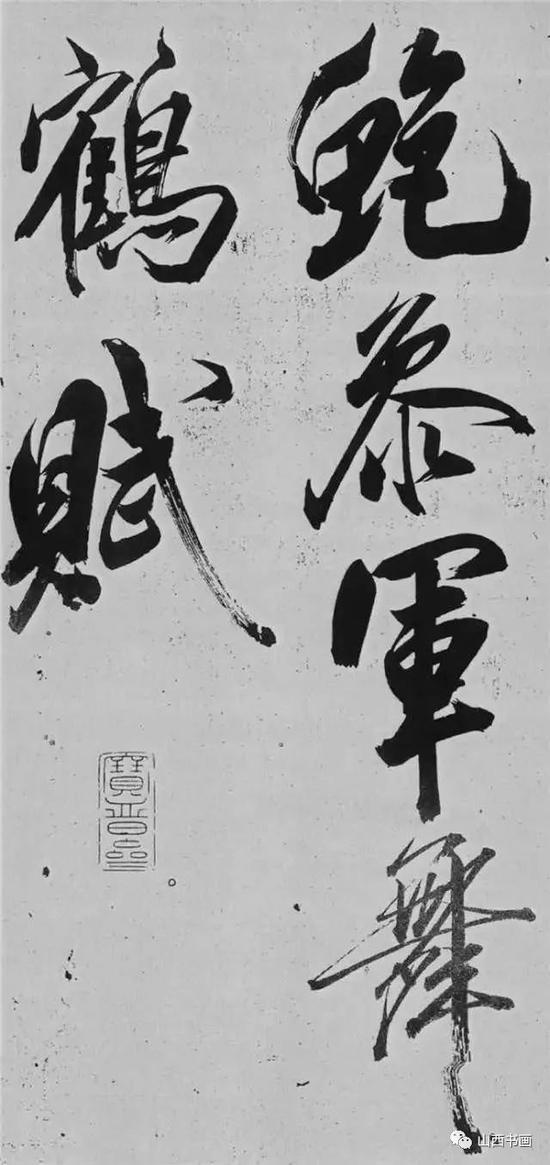 鲍參軍舞
鶴賦
寶晉齋
山西书画